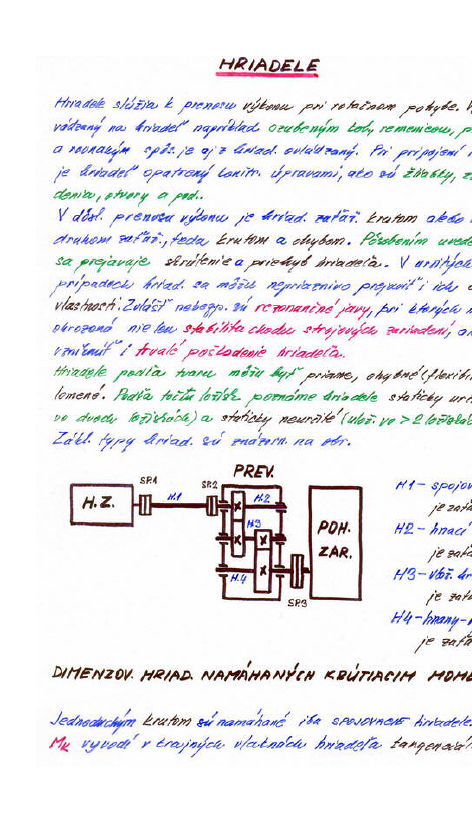 HRIADELE
Hriadele slúžia k prenosu výkonu pri rotačnom pohybe.
vádzaný na hriadeľ napríklad ozubeným kol., remenicou, p
a rovnakým spôs. je aj z hriad. odvádzaný. Pri pripojení
je hriadeľ opatrený konštr. úpravami, ako sú drážky, z
denia, otvory a pod..
V dôsl. prenosu výkonu je hriad. zaťaž. krutom alebo
druhom zaťaž., teda krutom a ohybom. Pôsobením uvede
sa prejavuje skrútenie a priehyb hriadeľa. V určitých
prípadoch hriad. sa môžu nepriaznivo prejaviť i ich
vlastnosti. Zvlášť nebezp. sú rezonančné javy, pri ktorých
ohrozená nie len stabilita chodu strojových zariadení, a
vzniknúť i trvalé poškodenie hriadeľa.
Hriadele podľa tvaru môžu byť priame, ohybné (flexibi
lomené. Podľa počtu ložísk poznáme hriadele staticky urč
vo dvoch ložiskách) a staticky neurčité (ulož. vo >2 ložiská
Zákl. typy hriad. sú znázorn. na obr.
PREV.
H.Z. SP.1 H.1 SP.2 H.2
H3
H.4
SP.3
POH.
ZAR.
H1- spojov
je zaťa
H2- hnací
je zaťa
H3- vlož. hr
je zaťa
H4- hnaný-
je zaťa
DIMENZOV. HRIAD. NAMÁHANÝCH KRÚTIACIM MOME
Jednoduchým krutom sú namáhané iba spojovacie hriadele
Mk vyvodí v krajných vláknách hriadeľa tangenciál